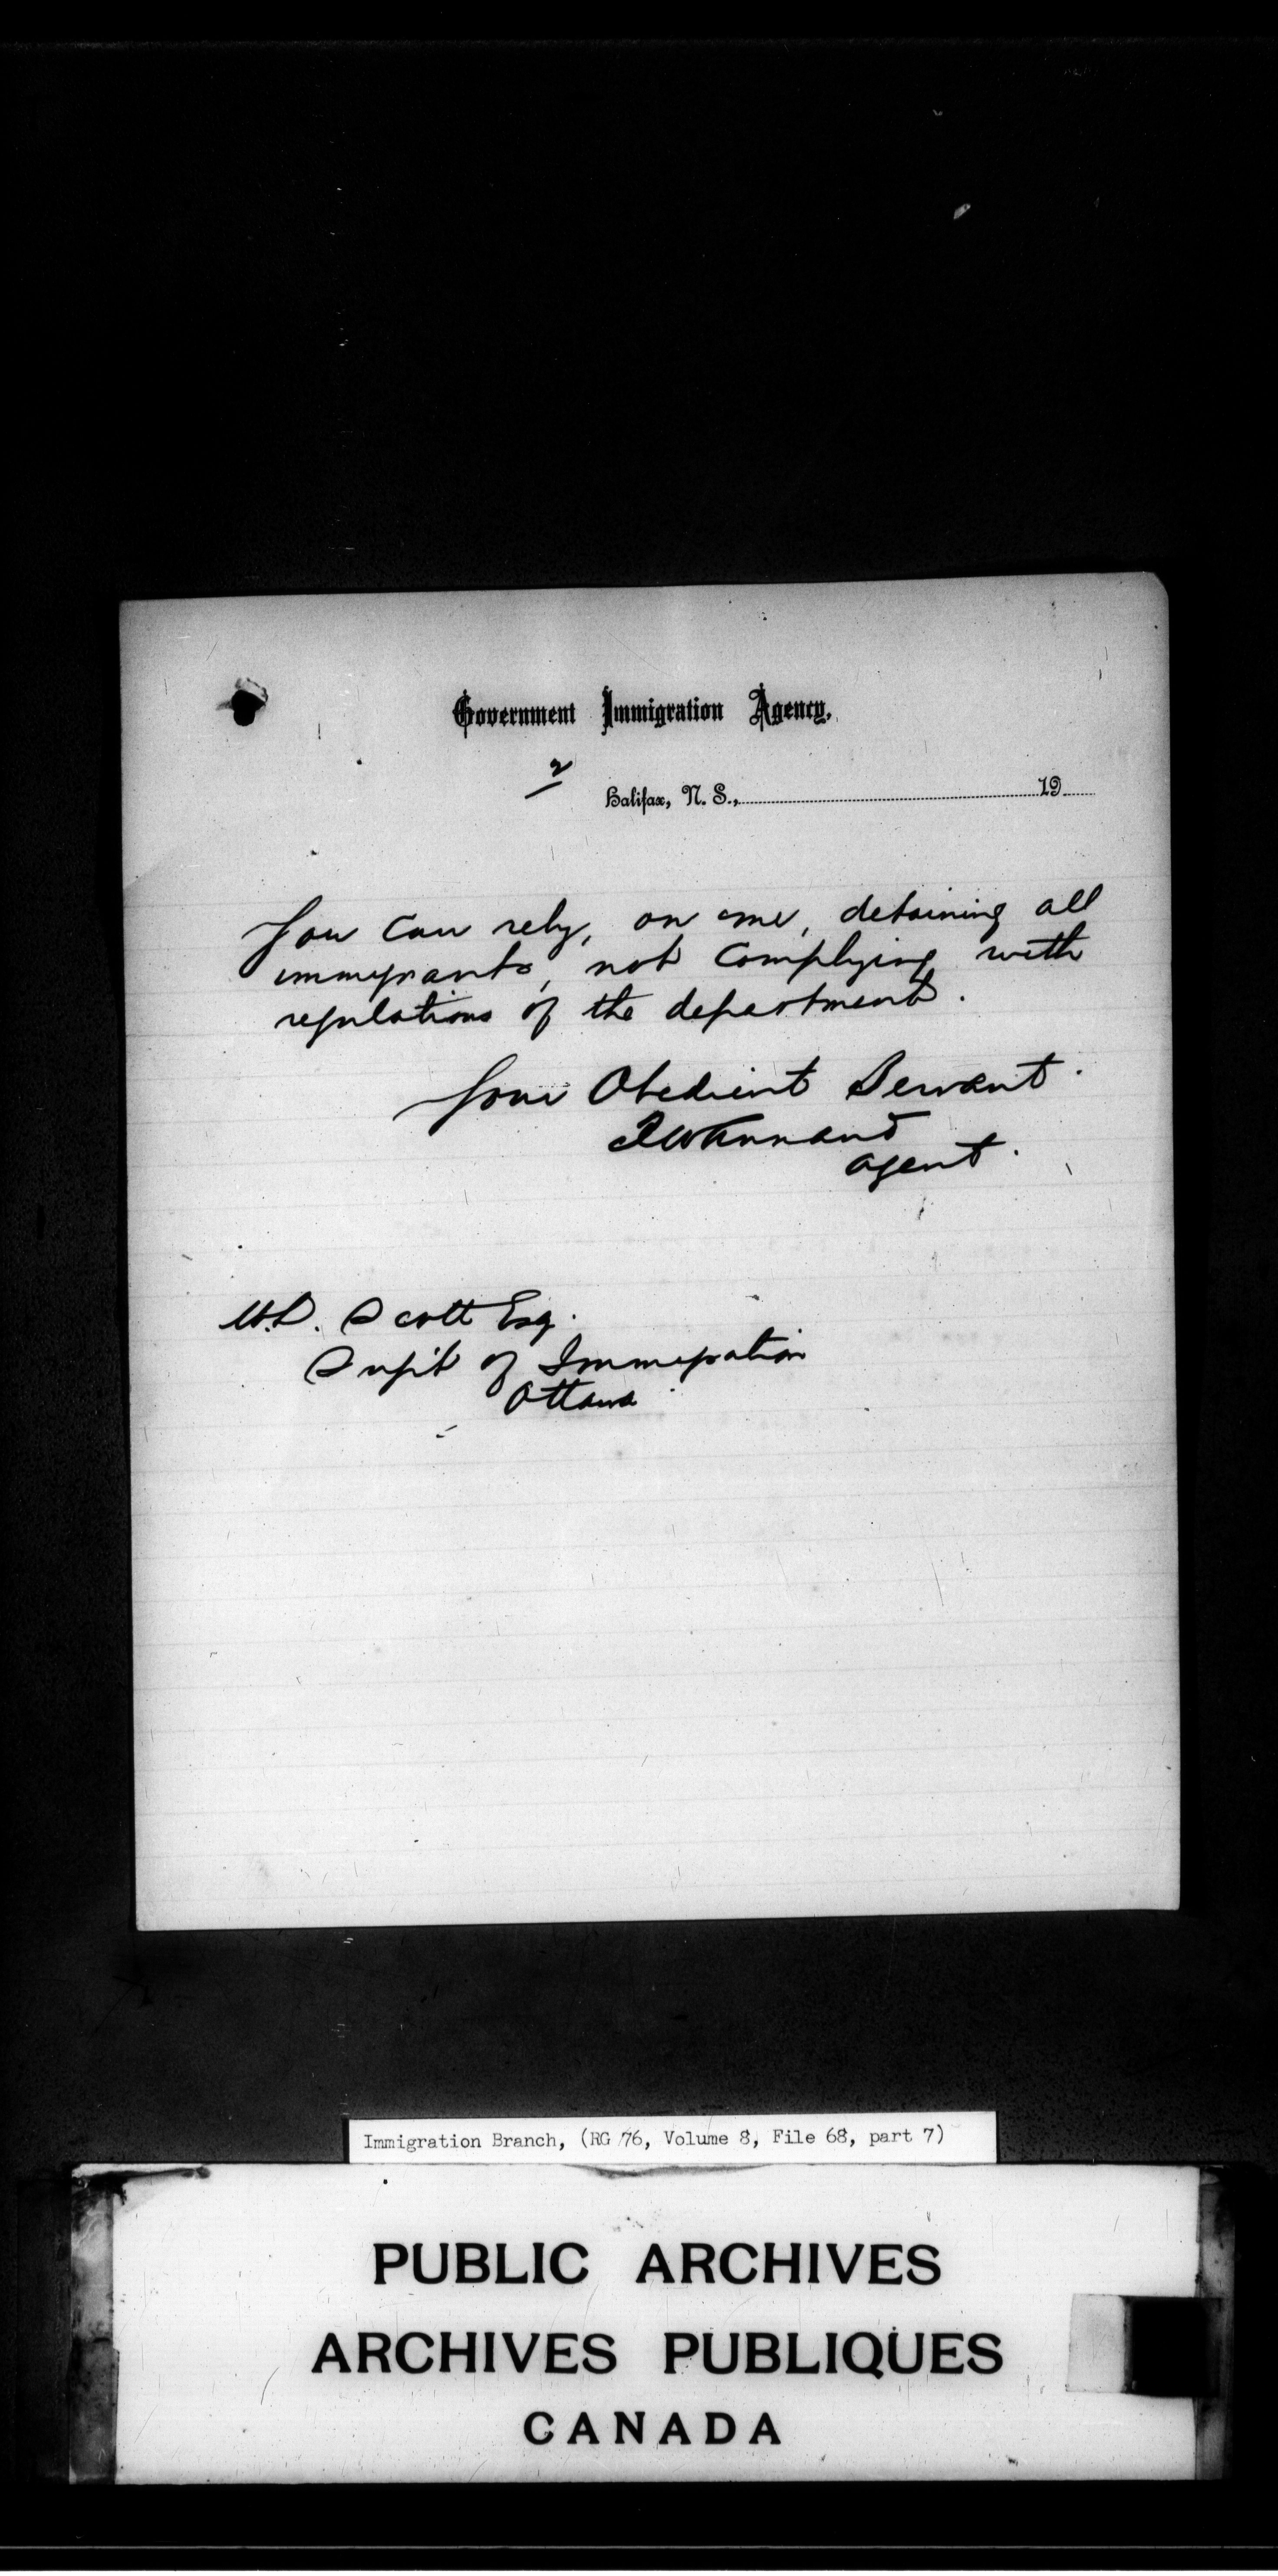 Government Immigration Agency,
2
Halifax, N. S., 19
You can rely, on me, detaining all
immigrants, not complying with
regulations of the department.
Your Obedient Servant.
F W Annand
agent.
W.D. Scott Esq.
Supt of Immigration
Ottawa
Immigration Branch, (RG 76, Volume 8, File 68, part 7)
PUBLIC ARCHIVES
ARCHIVES PUBLIQUES
CANADA